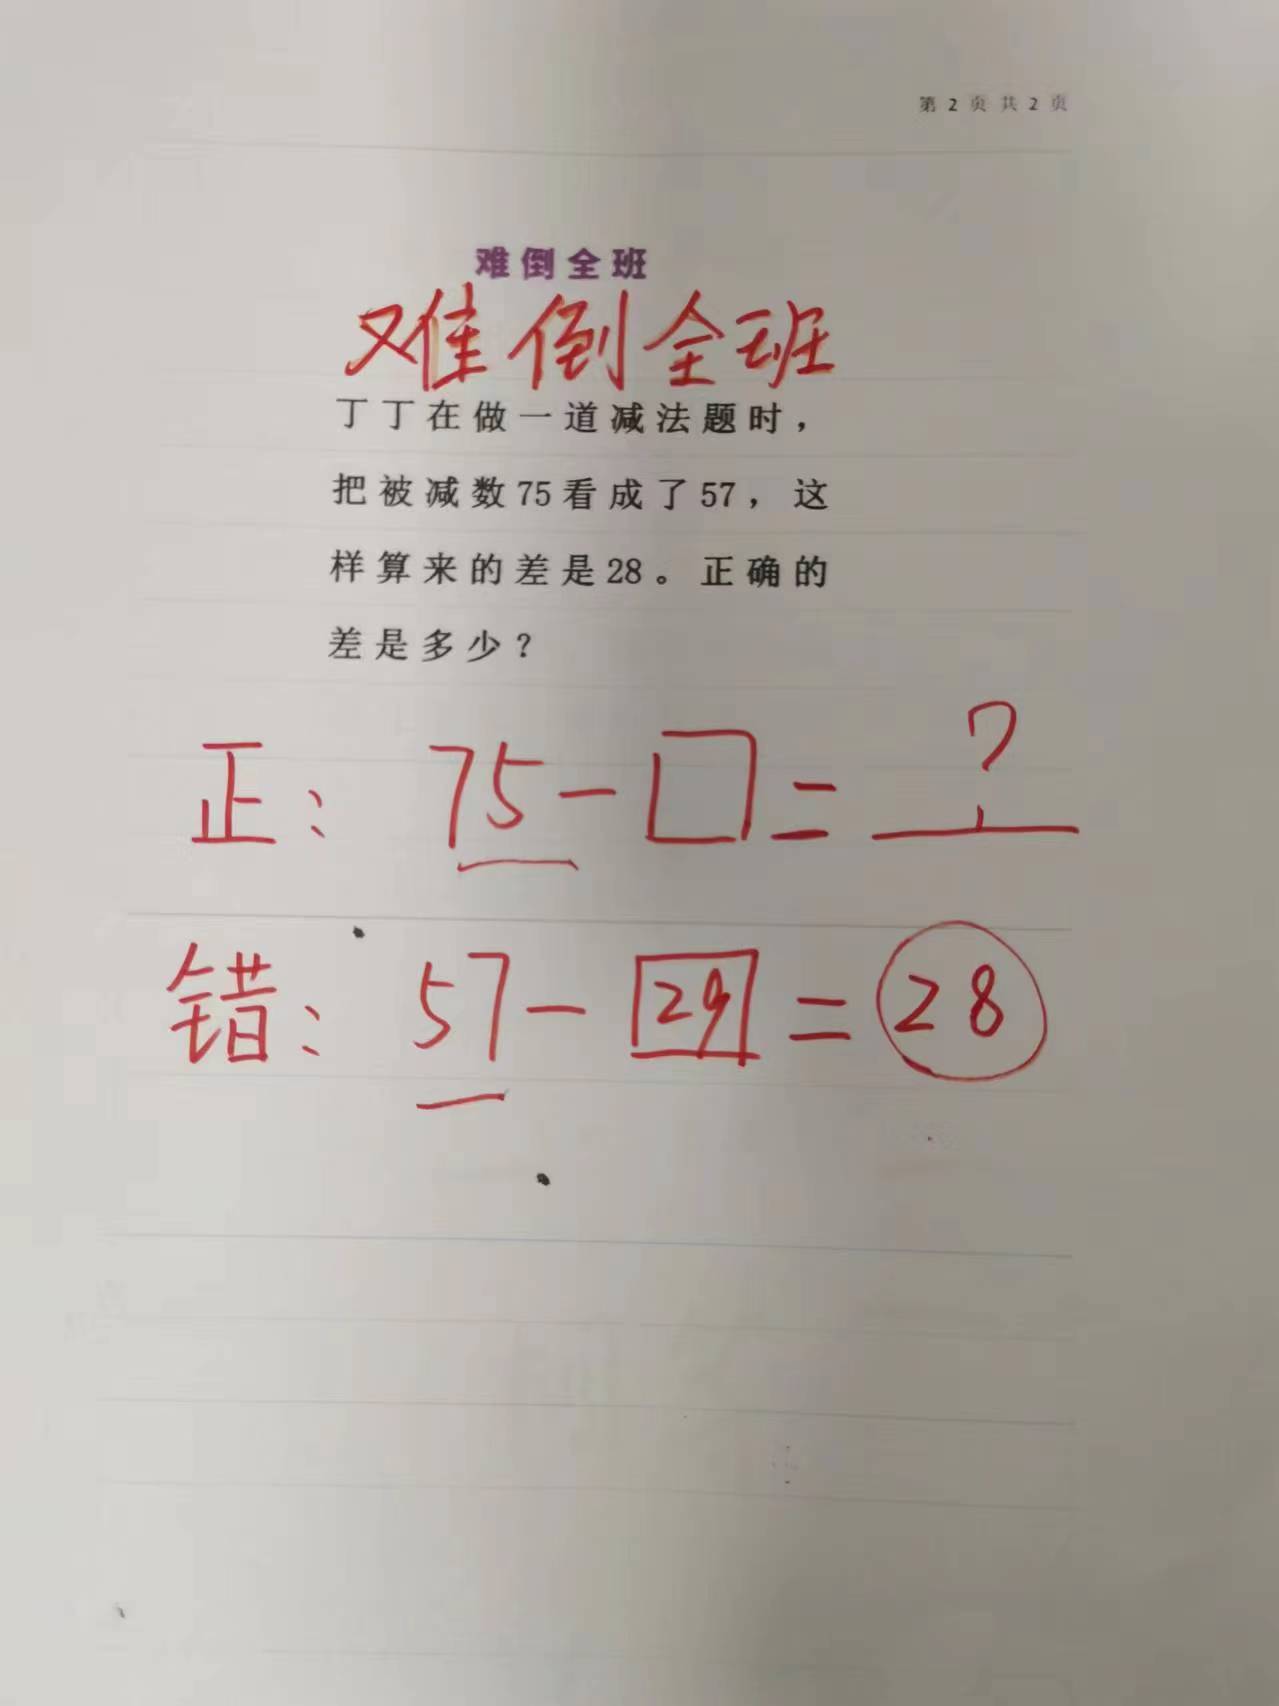 第 2 页 共 2 页
难倒全班
难倒全班
丁丁在做一道减法题时，
把被减数75看成了57，这
样算来的差是28。正确的
差是多少？
正：75－□＝？
错：57－29＝28